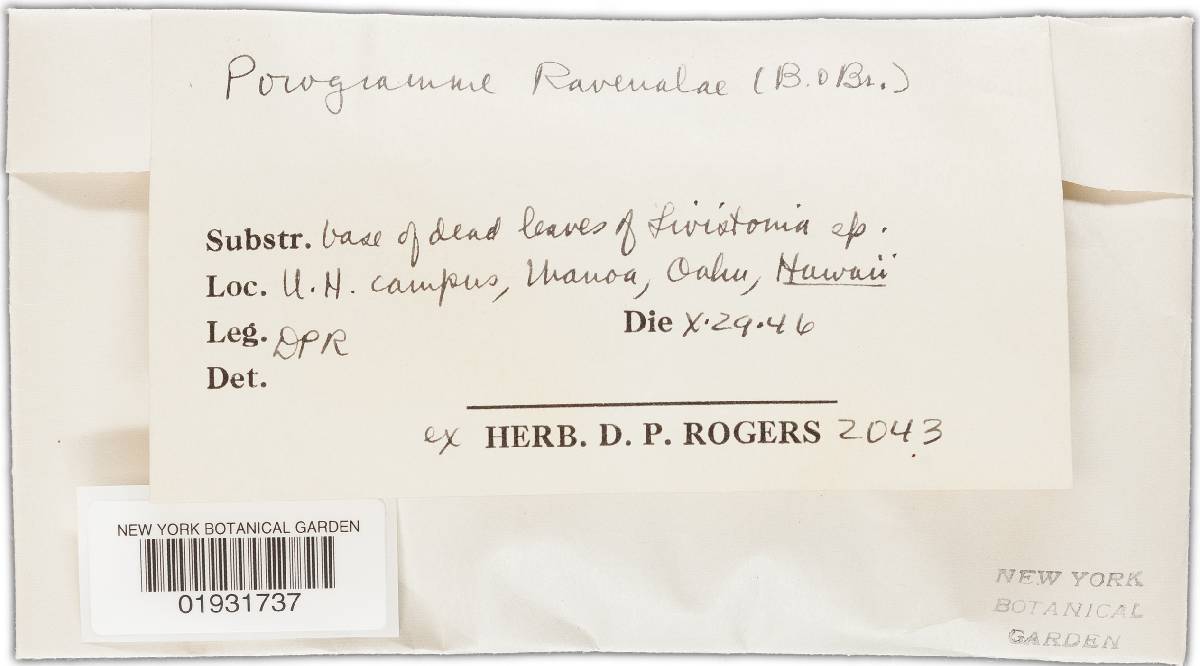 Porogramme Ravenalae (B. & Br.)
Substr. base of dead leaves of Livistonia sp.
Loc. U.H. campus, Manoa, Oahu, Hawaii
Leg. DPR Die X.29.46
Det.
ex HERB. D. P. ROGERS 2043
NEW YORK BOTANICAL GARDEN
01931737
NEW YORK
BOTANICAL
GARDEN